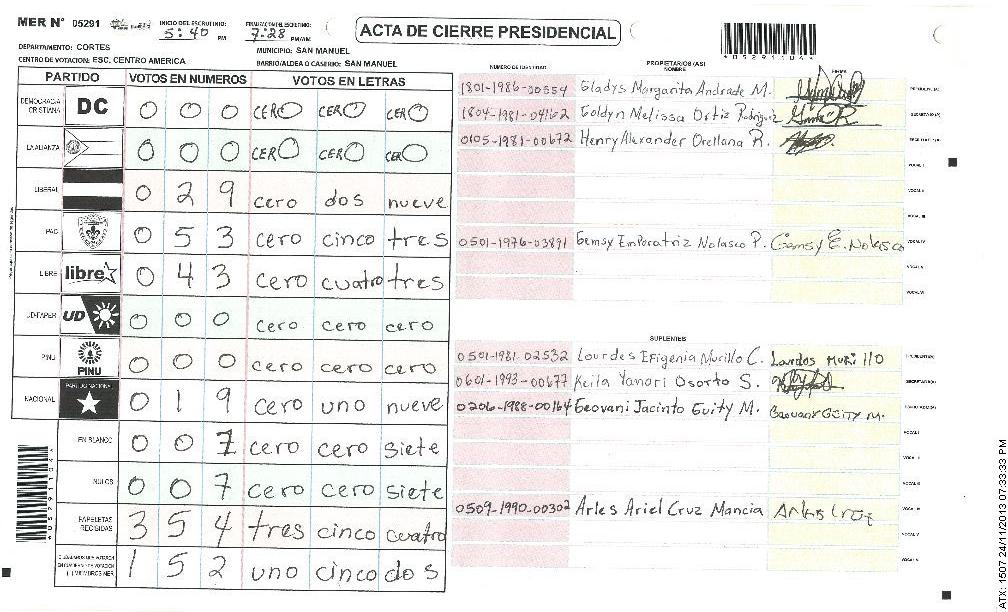 MER N° 05291 INICIO DEL ESCRUTINIO: 5:40 PM FINALIZACION DEL ESCRUTINIO: 7:28 PM/AM
ACTA DE CIERRE PRESIDENCIAL
*05291104*
DEPARTAMENTO: CORTES MUNICIPIO: SAN MANUEL
CENTRO DE VOTACION: ESC. CENTRO AMERICA BARRIO/ALDEA O CASERIO: SAN MANUEL
PARTIDO VOTOS EN NUMEROS VOTOS EN LETRAS
DEMOCRACIA CRISTIANA DC 0 0 0 CERO CERO CERO
LA ALIANZA 0 0 0 CERO CERO CERO
LIBERAL 0 2 9 cero dos nueve
PAC 0 5 3 cero cinco tres
LIBRE libre 0 4 3 cero cuatro tres
UD-FAPER UD 0 0 0 cero cero cero
PINU PINU 0 0 0 cero cero cero
NACIONAL PARTIDO NACIONAL 0 1 9 cero uno nueve
EN BLANCO 0 0 7 cero cero siete
NULOS 0 0 7 cero cero siete
PAPELETAS RECIBIDAS 3 5 4 tres cinco cuatro
1 5 2 uno cinco dos
*05291104*
NUMERO DE IDENTIDAD PROPIETARIOS (AS) NOMBRE FIRMA
1801-1986-00554 Gladys Margarita Andrade M. PRESIDENTE(A)
1804-1981-04162 Goldyn Melissa Ortiz Rodriguez SECRETARIO (A)
0105-1981-00672 Henry Alexander Orellana R. ESCRUTADOR (A)
VOCAL I
VOCAL II
VOCAL III
0501-1976-03891 Gemsy Emperatriz Nolasco P. Gemsy E. Nolasco VOCAL IV
VOCAL V
VOCAL VI
SUPLENTES
0501-1981-02532 Lourdes Efigenia Murillo C. Lourdes Murillo PRESIDENTE(A)
0601-1993-00677 Keila Yanori Osorto S. SECRETARIO(A)
0206-1988-00164 Geovani Jacinto Guity M. ESCRUTADOR(A)
VOCAL I
VOCAL II
0509-1990-00302 Arles Ariel Cruz Mancia Arles Cruz VOCAL III
VOCAL IV
VOCAL V
ATX: 1507 24/11/2013 07:33:33 PM